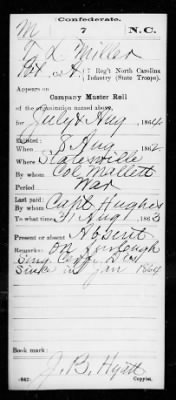 Confederate.
M 7 N.C.
T. L. Miller
Pvt. Co. K, 7 Reg't North Carolina
Infantry (State Troops).
Appears on
Company Muster Roll
of the organization named above,
for July & Aug, 1864
Enlisted:
When 8 Aug, 1862
Where Statesville
By whom Col. Mallett
Period War
Last paid:
By whom Capt Hughes
To what time 31 Aug, 1863
Present or absent Absent
Remarks: On furlough
Surg. Certf. Dis
since 1st Jan 1864
Book mark:
J. B. Hyatt
(642) Copyist.